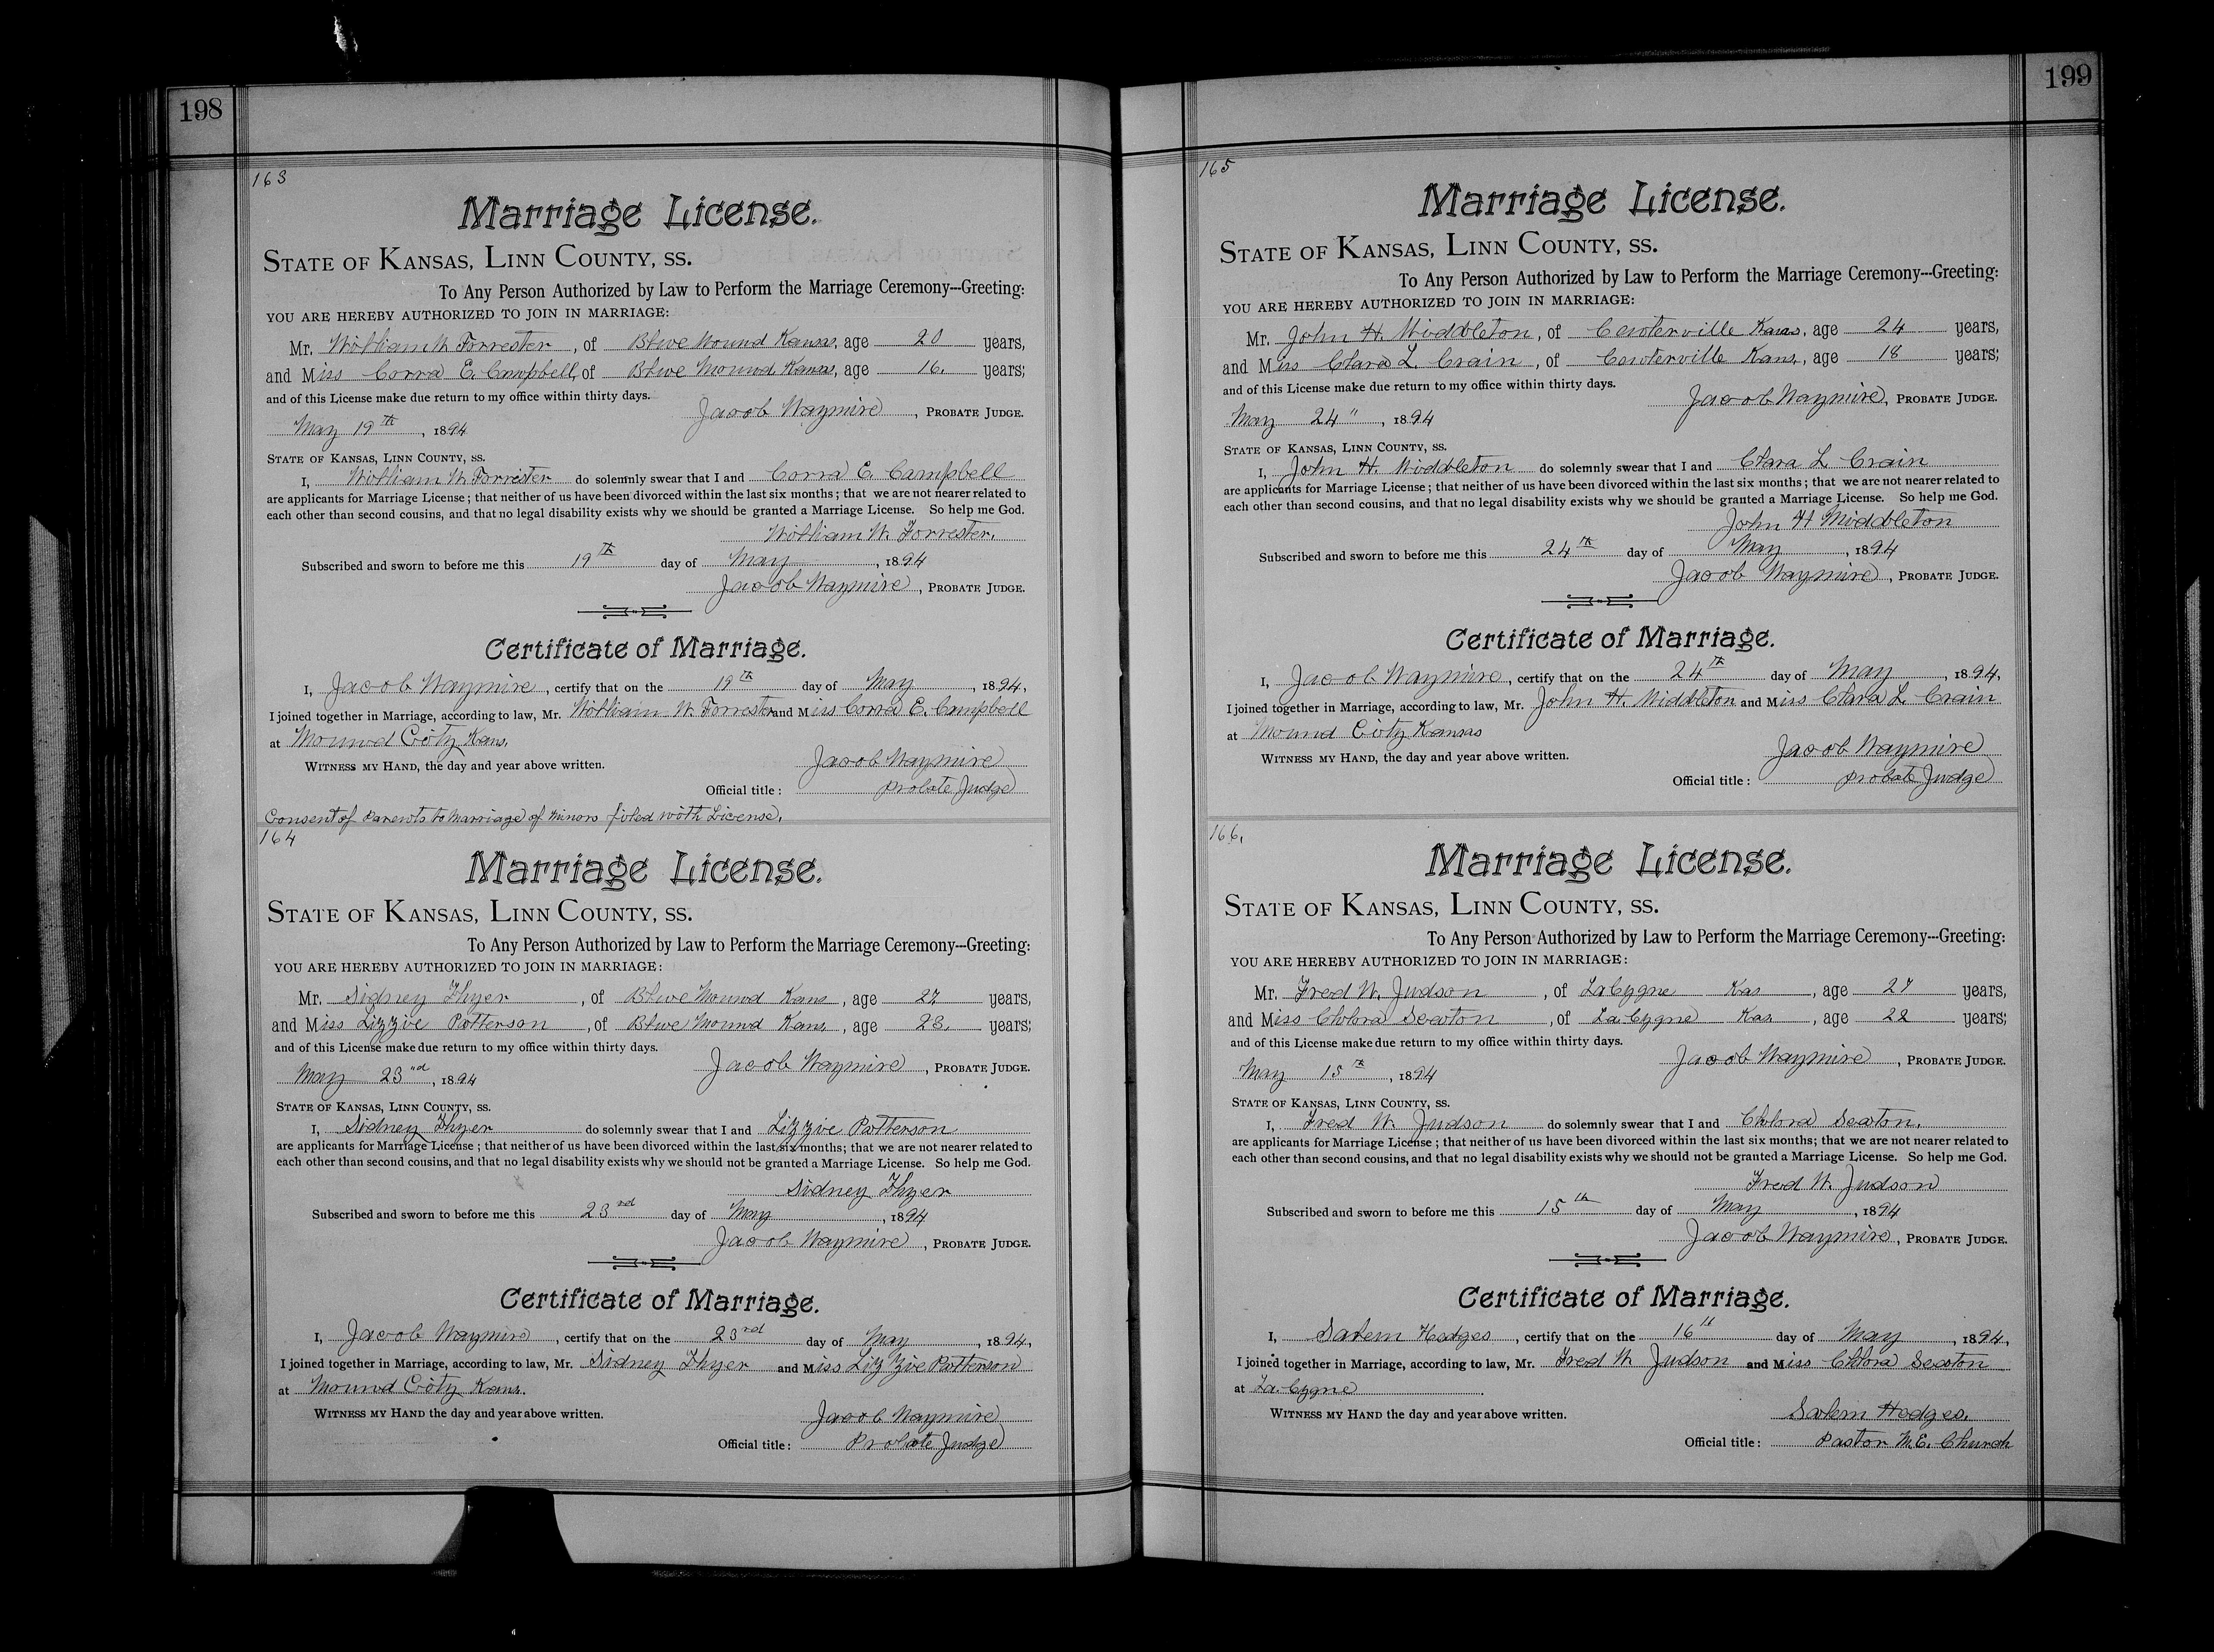 198
163
Marriage License.
STATE OF KANSAS, LINN COUNTY, SS.
To Any Person Authorized by Law to Perform the Marriage Ceremony---Greeting:
YOU ARE HEREBY AUTHORIZED TO JOIN IN MARRIAGE:
Mr. William W. Forrester, of Blue Mound Kansas, age 20 years,
and Miss Corra E. Campbell, of Blue Mound Kansas, age 16. years;
and of this License make due return to my office within thirty days.
Jacob Waymire, PROBATE JUDGE.
May 19th, 1894
STATE OF KANSAS, LINN COUNTY, SS.
I, William W. Forrester do solemnly swear that I and Corra E. Campbell
are applicants for Marriage License; that neither of us have been divorced within the last six months; that we are not nearer related to
each other than second cousins, and that no legal disability exists why we should be granted a Marriage License. So help me God.
William W. Forrester.
Subscribed and sworn to before me this 19th day of May, 1894
Jacob Waymire, PROBATE JUDGE.
Certificate of Marriage.
I, Jacob Waymire, certify that on the 19th day of May, 1894,
I joined together in Marriage, according to law, Mr. William W. Forrester and Miss Corra E. Campbell
at Mound City Kans.
WITNESS MY HAND, the day and year above written.
Jacob Waymire
Official title: Probate Judge
Consent of Parents to Marriage of Minors filed with License.
164
Marriage License.
STATE OF KANSAS, LINN COUNTY, SS.
To Any Person Authorized by Law to Perform the Marriage Ceremony---Greeting:
YOU ARE HEREBY AUTHORIZED TO JOIN IN MARRIAGE:
Mr. Sidney Thyer, of Blue Mound Kans, age 27 years,
and Miss Lizzie Patterson, of Blue Mound Kans, age 23. years;
and of this License make due return to my office within thirty days.
Jacob Waymire, PROBATE JUDGE.
May 23"d, 1894
STATE OF KANSAS, LINN COUNTY, SS.
I, Sidney Thyer do solemnly swear that I and Lizzie Patterson
are applicants for Marriage License; that neither of us have been divorced within the last six months; that we are not nearer related to
each other than second cousins, and that no legal disability exists why we should not be granted a Marriage License. So help me God.
Sidney Thyer
Subscribed and sworn to before me this 23rd day of May, 1894
Jacob Waymire, PROBATE JUDGE.
Certificate of Marriage.
I, Jacob Waymire, certify that on the 23rd day of May, 1894,
I joined together in Marriage, according to law, Mr. Sidney Thyer and Miss Lizzie Patterson
at Mound City Kans.
WITNESS MY HAND the day and year above written.
Jacob Waymire
Official title: Probate Judge
199
165
Marriage License.
STATE OF KANSAS, LINN COUNTY, SS.
To Any Person Authorized by Law to Perform the Marriage Ceremony---Greeting:
YOU ARE HEREBY AUTHORIZED TO JOIN IN MARRIAGE:
Mr. John H. Middleton, of Centerville Kans, age 24 years,
and Miss Clara L. Crain, of Centerville Kans, age 18 years;
and of this License make due return to my office within thirty days.
Jacob Waymire, PROBATE JUDGE.
May 24", 1894
STATE OF KANSAS, LINN COUNTY, SS.
I, John H. Middleton do solemnly swear that I and Clara L Crain
are applicants for Marriage License; that neither of us have been divorced within the last six months; that we are not nearer related to
each other than second cousins, and that no legal disability exists why we should be granted a Marriage License. So help me God.
John H Middleton
Subscribed and sworn to before me this 24th day of May, 1894
Jacob Waymire, PROBATE JUDGE.
Certificate of Marriage.
I, Jacob Waymire, certify that on the 24th day of May, 1894,
I joined together in Marriage, according to law, Mr. John H. Middleton and Miss Clara L. Crain
at Mound City Kansas
WITNESS MY HAND, the day and year above written.
Jacob Waymire
Official title: Probate Judge
166.
Marriage License.
STATE OF KANSAS, LINN COUNTY, SS.
To Any Person Authorized by Law to Perform the Marriage Ceremony---Greeting:
YOU ARE HEREBY AUTHORIZED TO JOIN IN MARRIAGE:
Mr. Fred W. Judson, of LaCygne Kas, age 27 years,
and Miss Chlora Seaton, of La.Cygne Kas, age 22 years;
and of this License make due return to my office within thirty days.
Jacob Waymire, PROBATE JUDGE.
May 15th, 1894
STATE OF KANSAS, LINN COUNTY, SS.
I, Fred W. Judson do solemnly swear that I and Chlora Seaton.
are applicants for Marriage License; that neither of us have been divorced within the last six months; that we are not nearer related to
each other than second cousins, and that no legal disability exists why we should not be granted a Marriage License. So help me God.
Fred W. Judson
Subscribed and sworn to before me this 15th day of May, 1894
Jacob Waymire, PROBATE JUDGE.
Certificate of Marriage.
I, Salem Hedges, certify that on the 16th day of May, 1894,
I joined together in Marriage, according to law, Mr. Fred W. Judson and Miss Chlora Seaton
at La.Cygne.
WITNESS MY HAND the day and year above written.
Salem Hedges.
Official title: Pastor M.E. Church